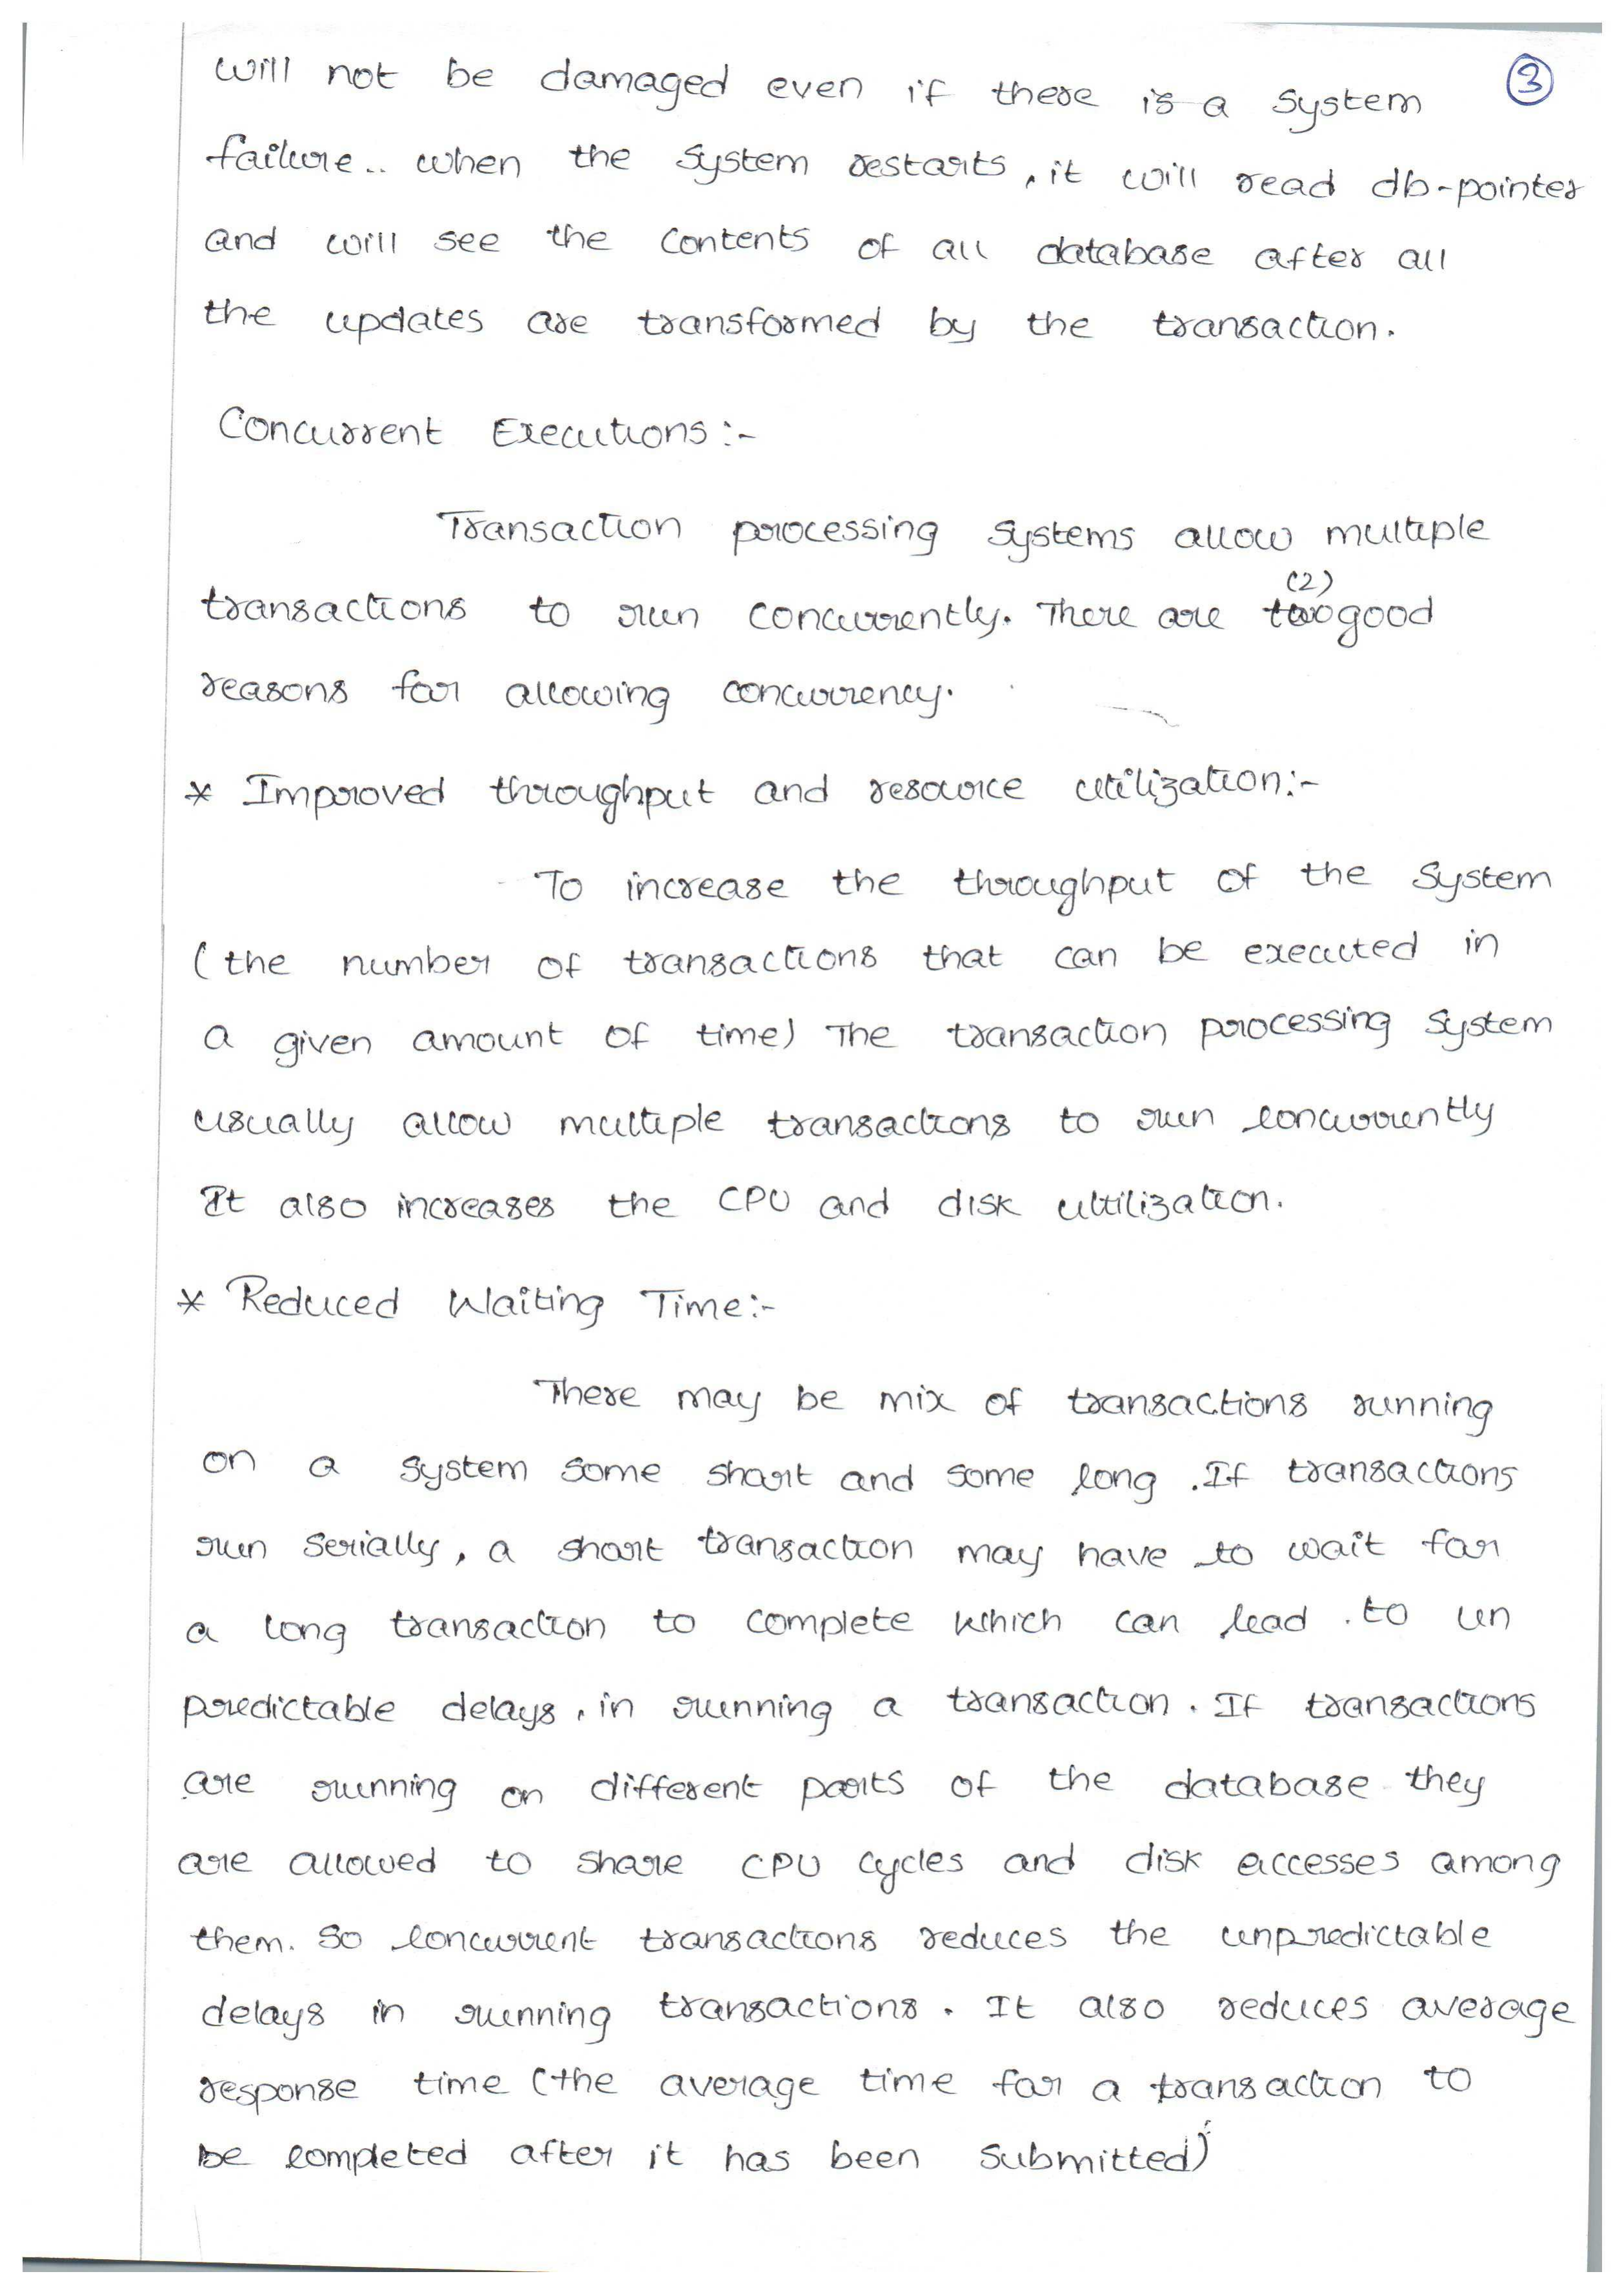 will not be damaged even if there is a system
③
failure.. when the system restarts, it will read db-pointer
and will see the contents of all database after all
the updates are transformed by the transaction.
Concurrent Executions :-
Transaction processing systems allow multiple
(2)
transactions to run concurrently. There are two good
reasons for allowing concurrency.
* Improved throughput and resource utilization:-
To increase the throughput of the system
(the number of transactions that can be executed in
a given amount of time) The transaction processing system
usually allow multiple transactions to run concurrently
It also increases the CPU and disk ultilization.
* Reduced Waiting Time:-
There may be mix of transactions running
on a system some short and some long .If transactions
run serially, a short transaction may have to wait for
a long transaction to complete which can lead .to un
predictable delays, in running a transaction. If transactions
are running on different parts of the database they
are allowed to share CPU cycles and disk accesses among
them. So concurrent transactions reduces the unpredictable
delays in running transactions. It also reduces average
response time (the average time for a transaction to
be completed after it has been submitted)